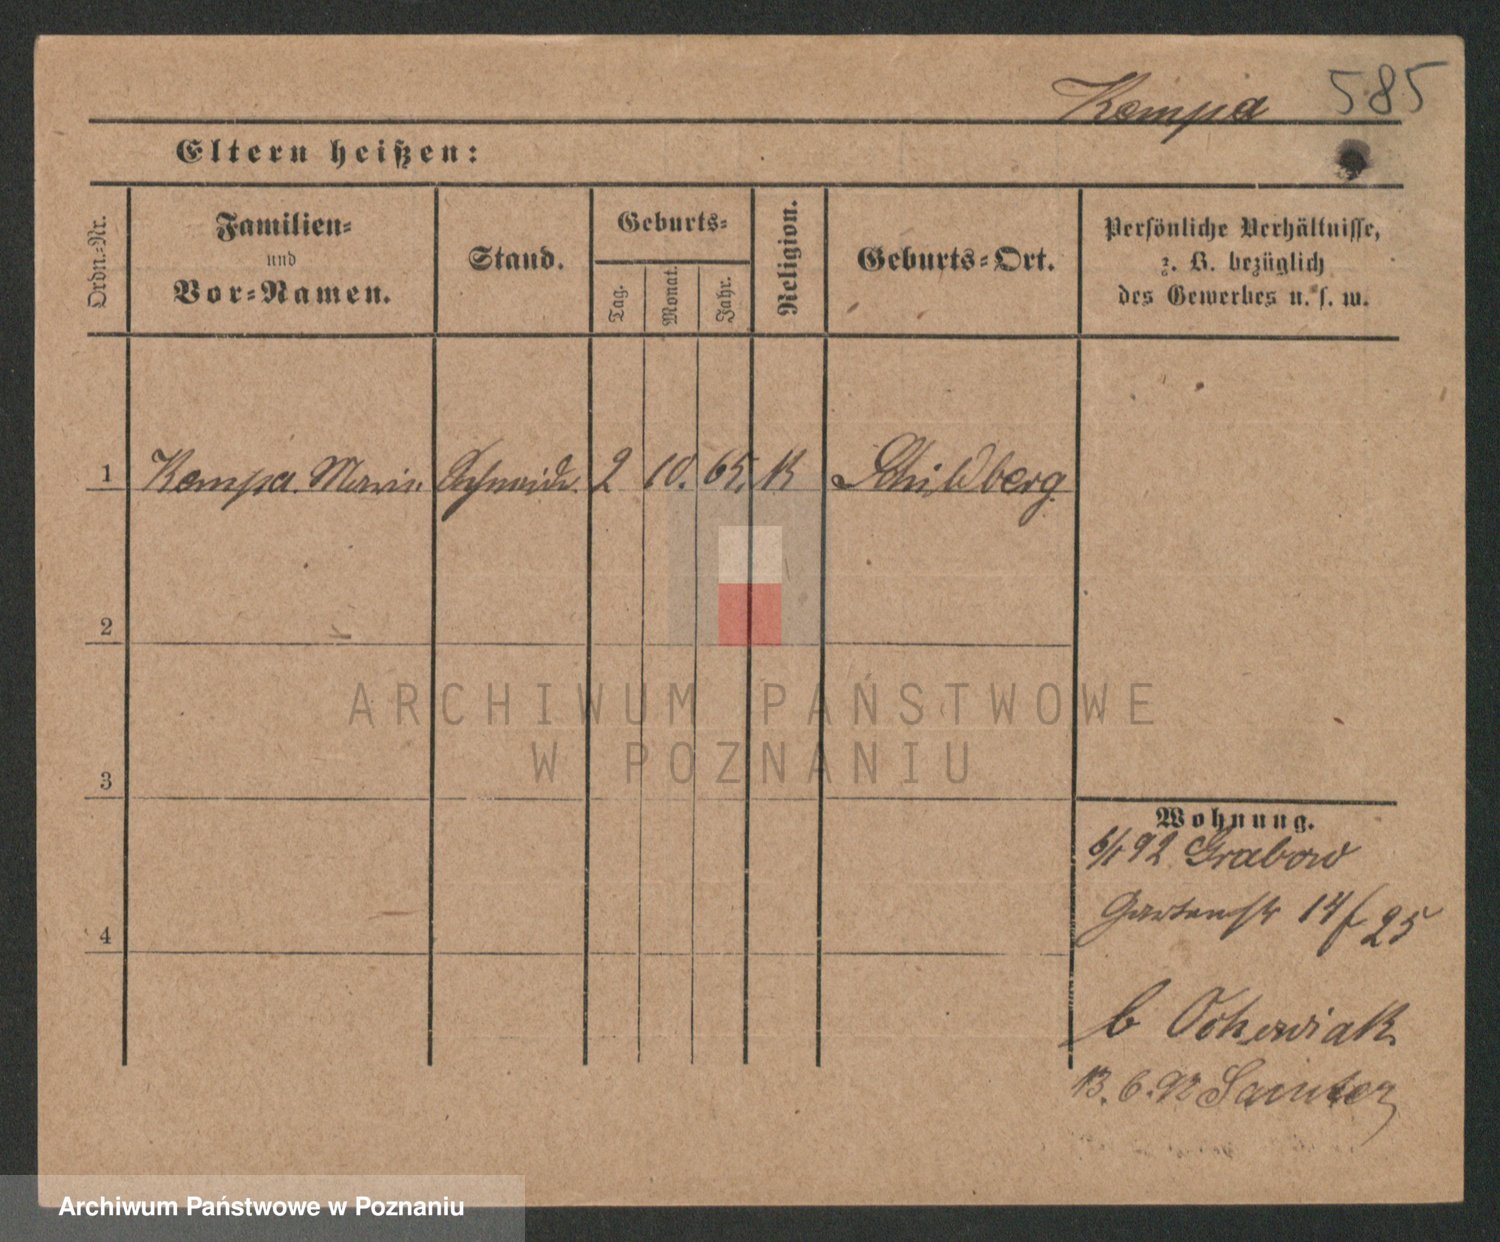 Kempa 585
Eltern heißen:
Ordn.-Nr.
Familien-
und
Vor-Namen.
Stand.
Geburts-
Tag.
Monat.
Jahr.
Religion.
Geburts-Ort.
Persönliche Verhältnisse,
z. B. bezüglich
des Gewerbes u. s. w.
1 Kempa Marie Schneidr. 2 10. 65. K Schildberg
2
3
4
Wohnung.
6/1 92 Grabow
Gartenstr 14 f 25
b
13. 6. 92 Samter
ARCHIWUM PAŃSTWOWE
W POZNANIU
Archiwum Państwowe w Poznaniu